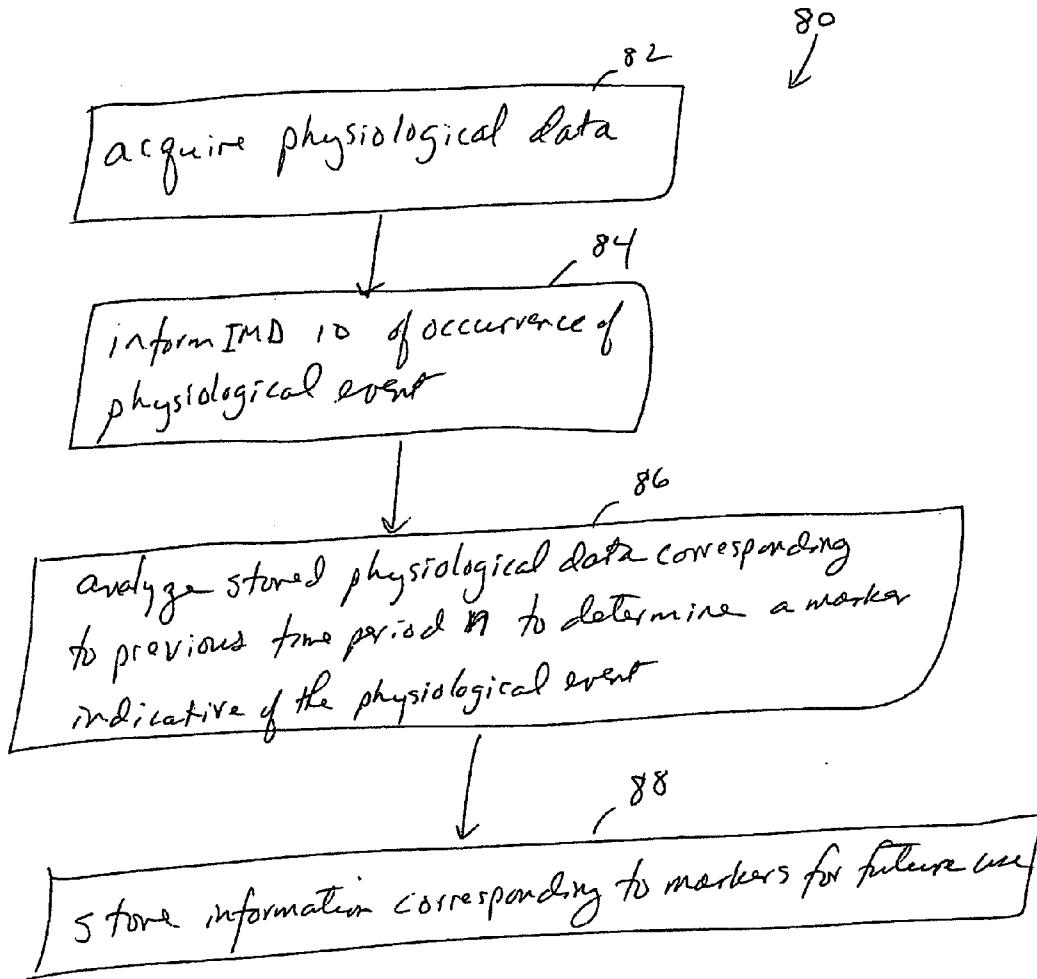 80
82
acquire physiological data
84
inform IMD 10 of occurrence of
physiological event
86
analyze stored physiological data corresponding
to previous time period n to determine a marker
indicative of the physiological event
88
store information corresponding to markers for future use